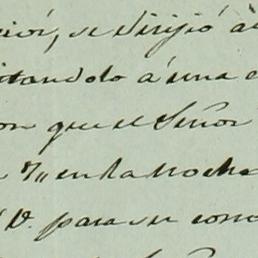 se dirijió á
itandolo á una
on que el Señor
7,, en la noche
V. para su cono